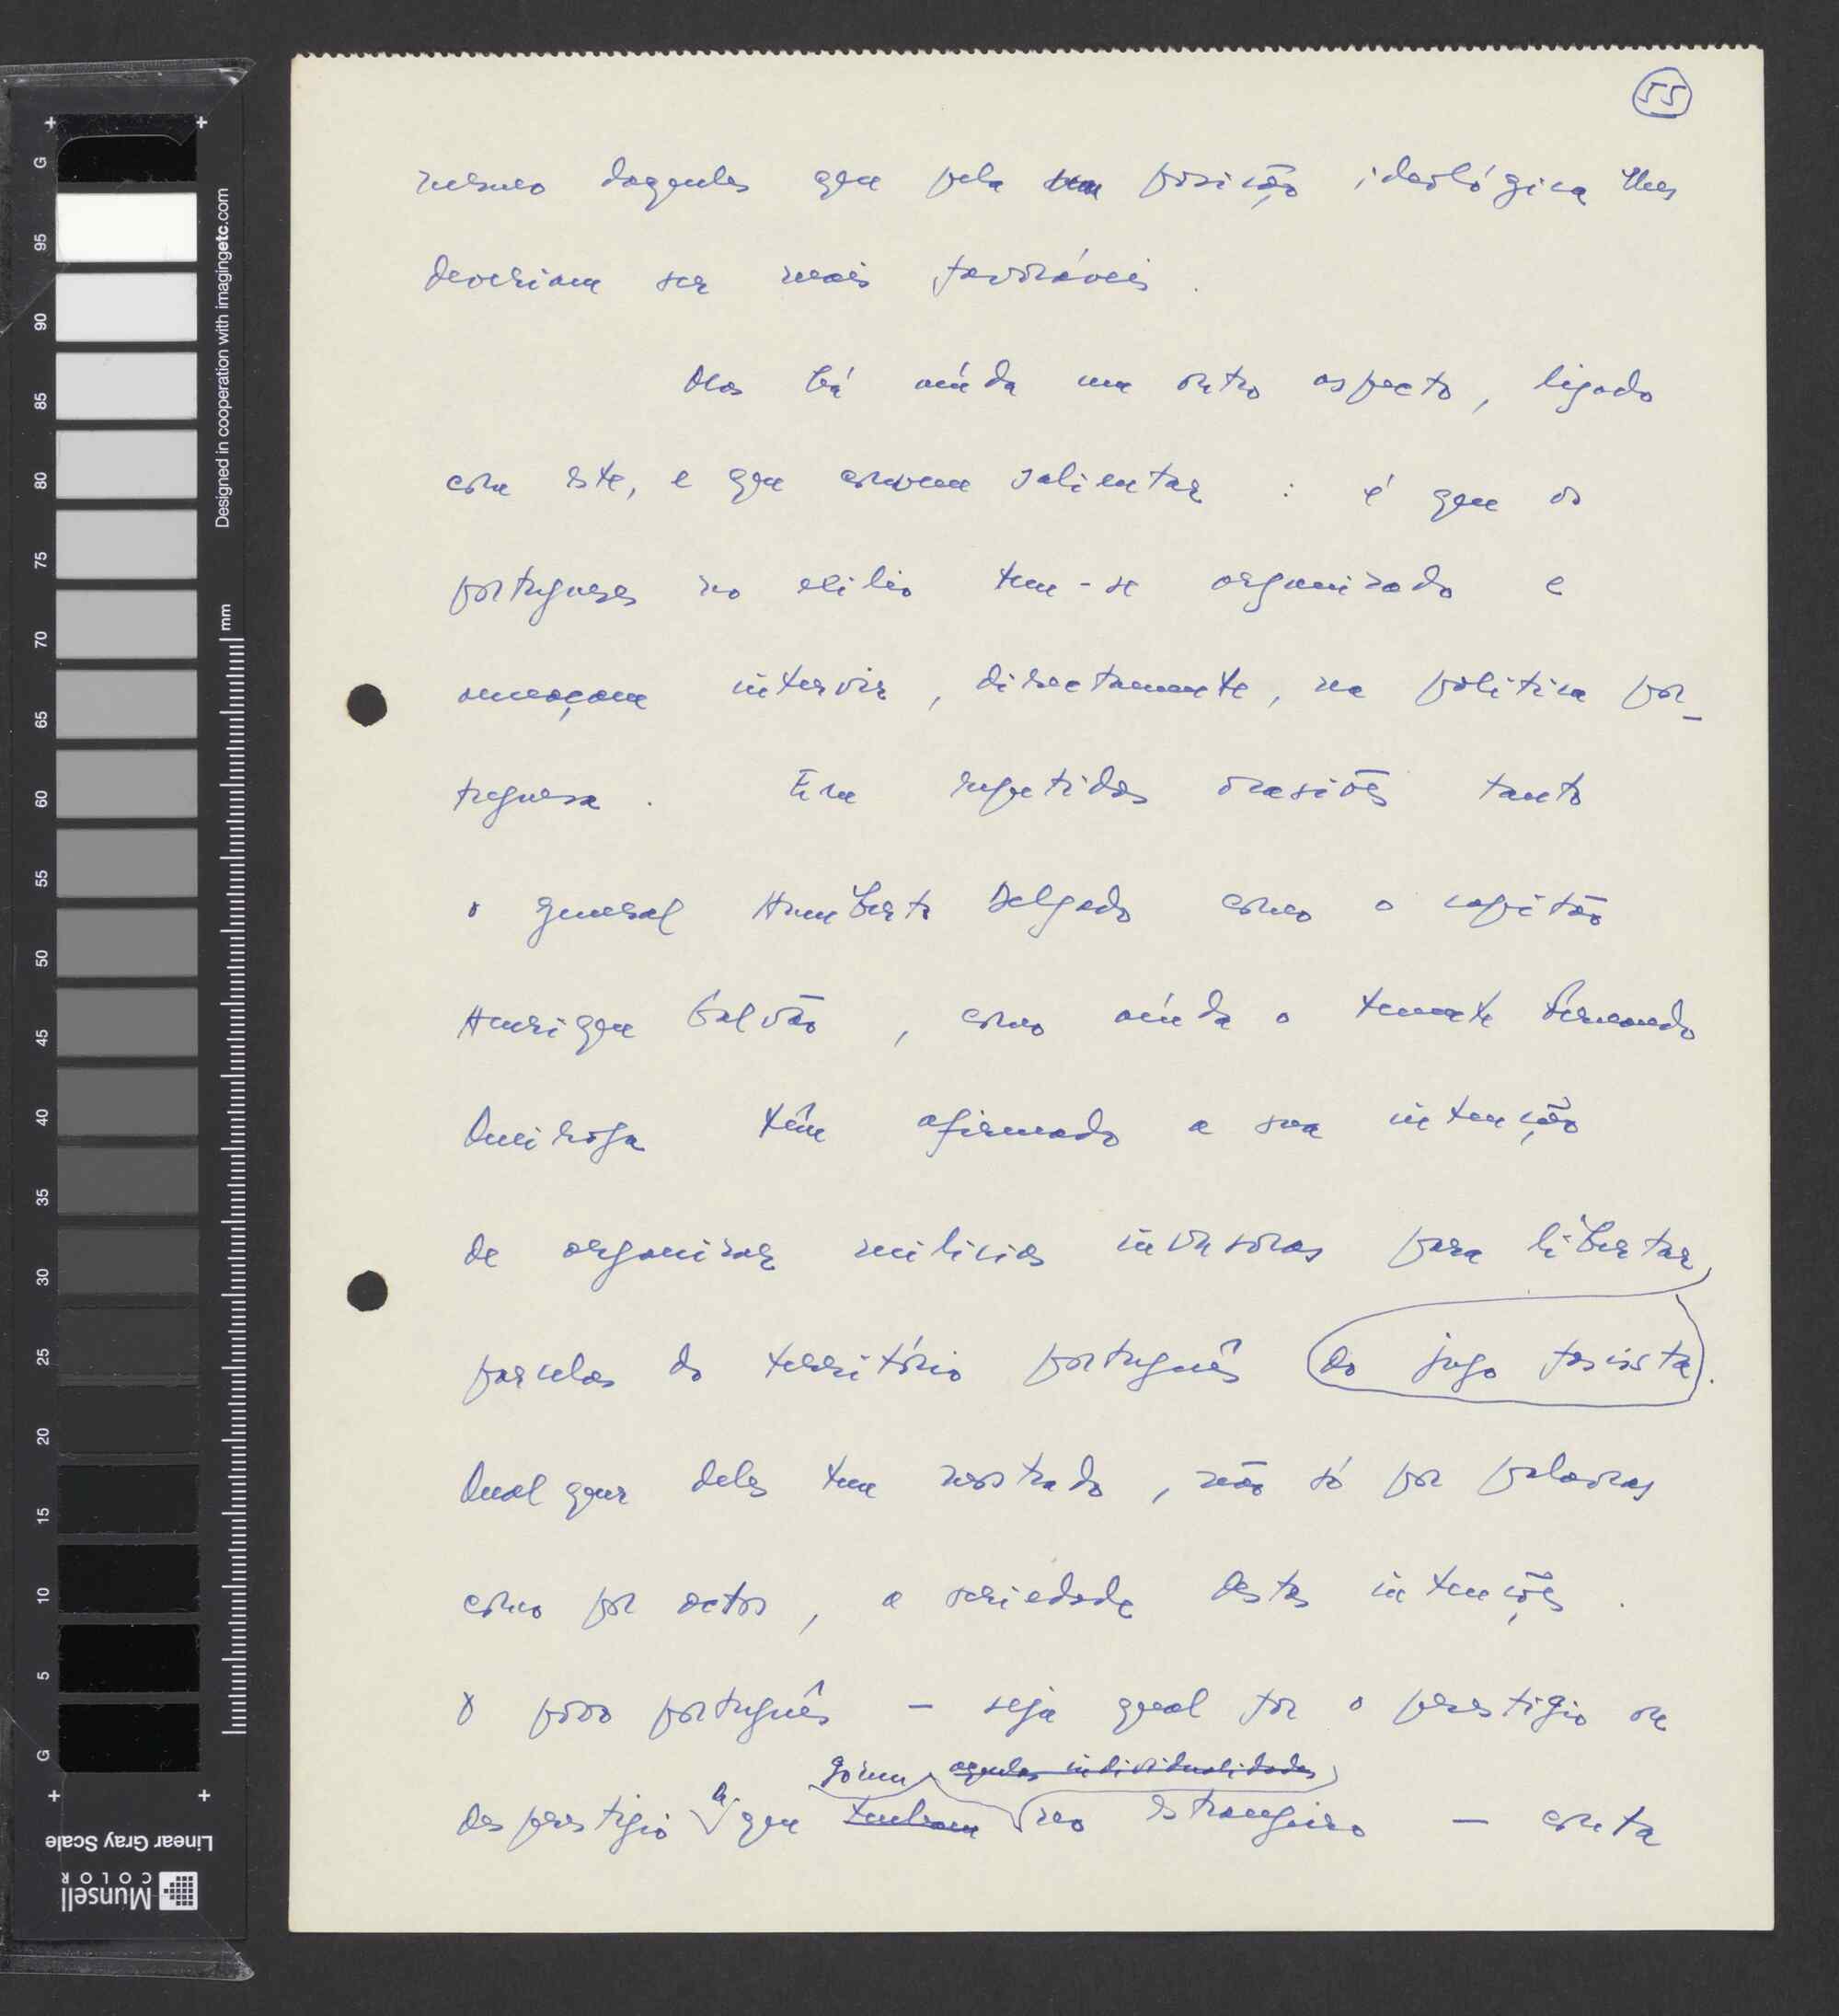 55
mesmo daqueles que pela sua posição ideológica lhes
deveriam ser mais favoráveis.
Mas há ainda um outro aspecto, ligado
com este, e que convem salientar : é que os
portugueses no exílio tem-se organizado e
ameaçam intervir, directamente, na política por-
tuguesa. Em repetidas ocasiões tanto
o general Humberto Delgado como o capitão
Henrique Galvão, como ainda o tenente Fernando
Queiroga têm afirmado a sua intenção
de organizar milicias invasoras para libertar
parcelas do território português do jugo fascista.
Qualquer deles tem mostrado, não só por palavras
como por actos, a seriedade destas intenções.
O povo português — seja qual for o prestigio ou
gozem aquelas individualidades
desprestigio de que tenham no estrangeiro — conta
G
95
90
85
80
75
70
65
60
55
50
45
40
35
30
25
20
15
10
5
G
mm
Designed in cooperation with imagingetc.com
Linear Gray Scale
Munsell
COLOR